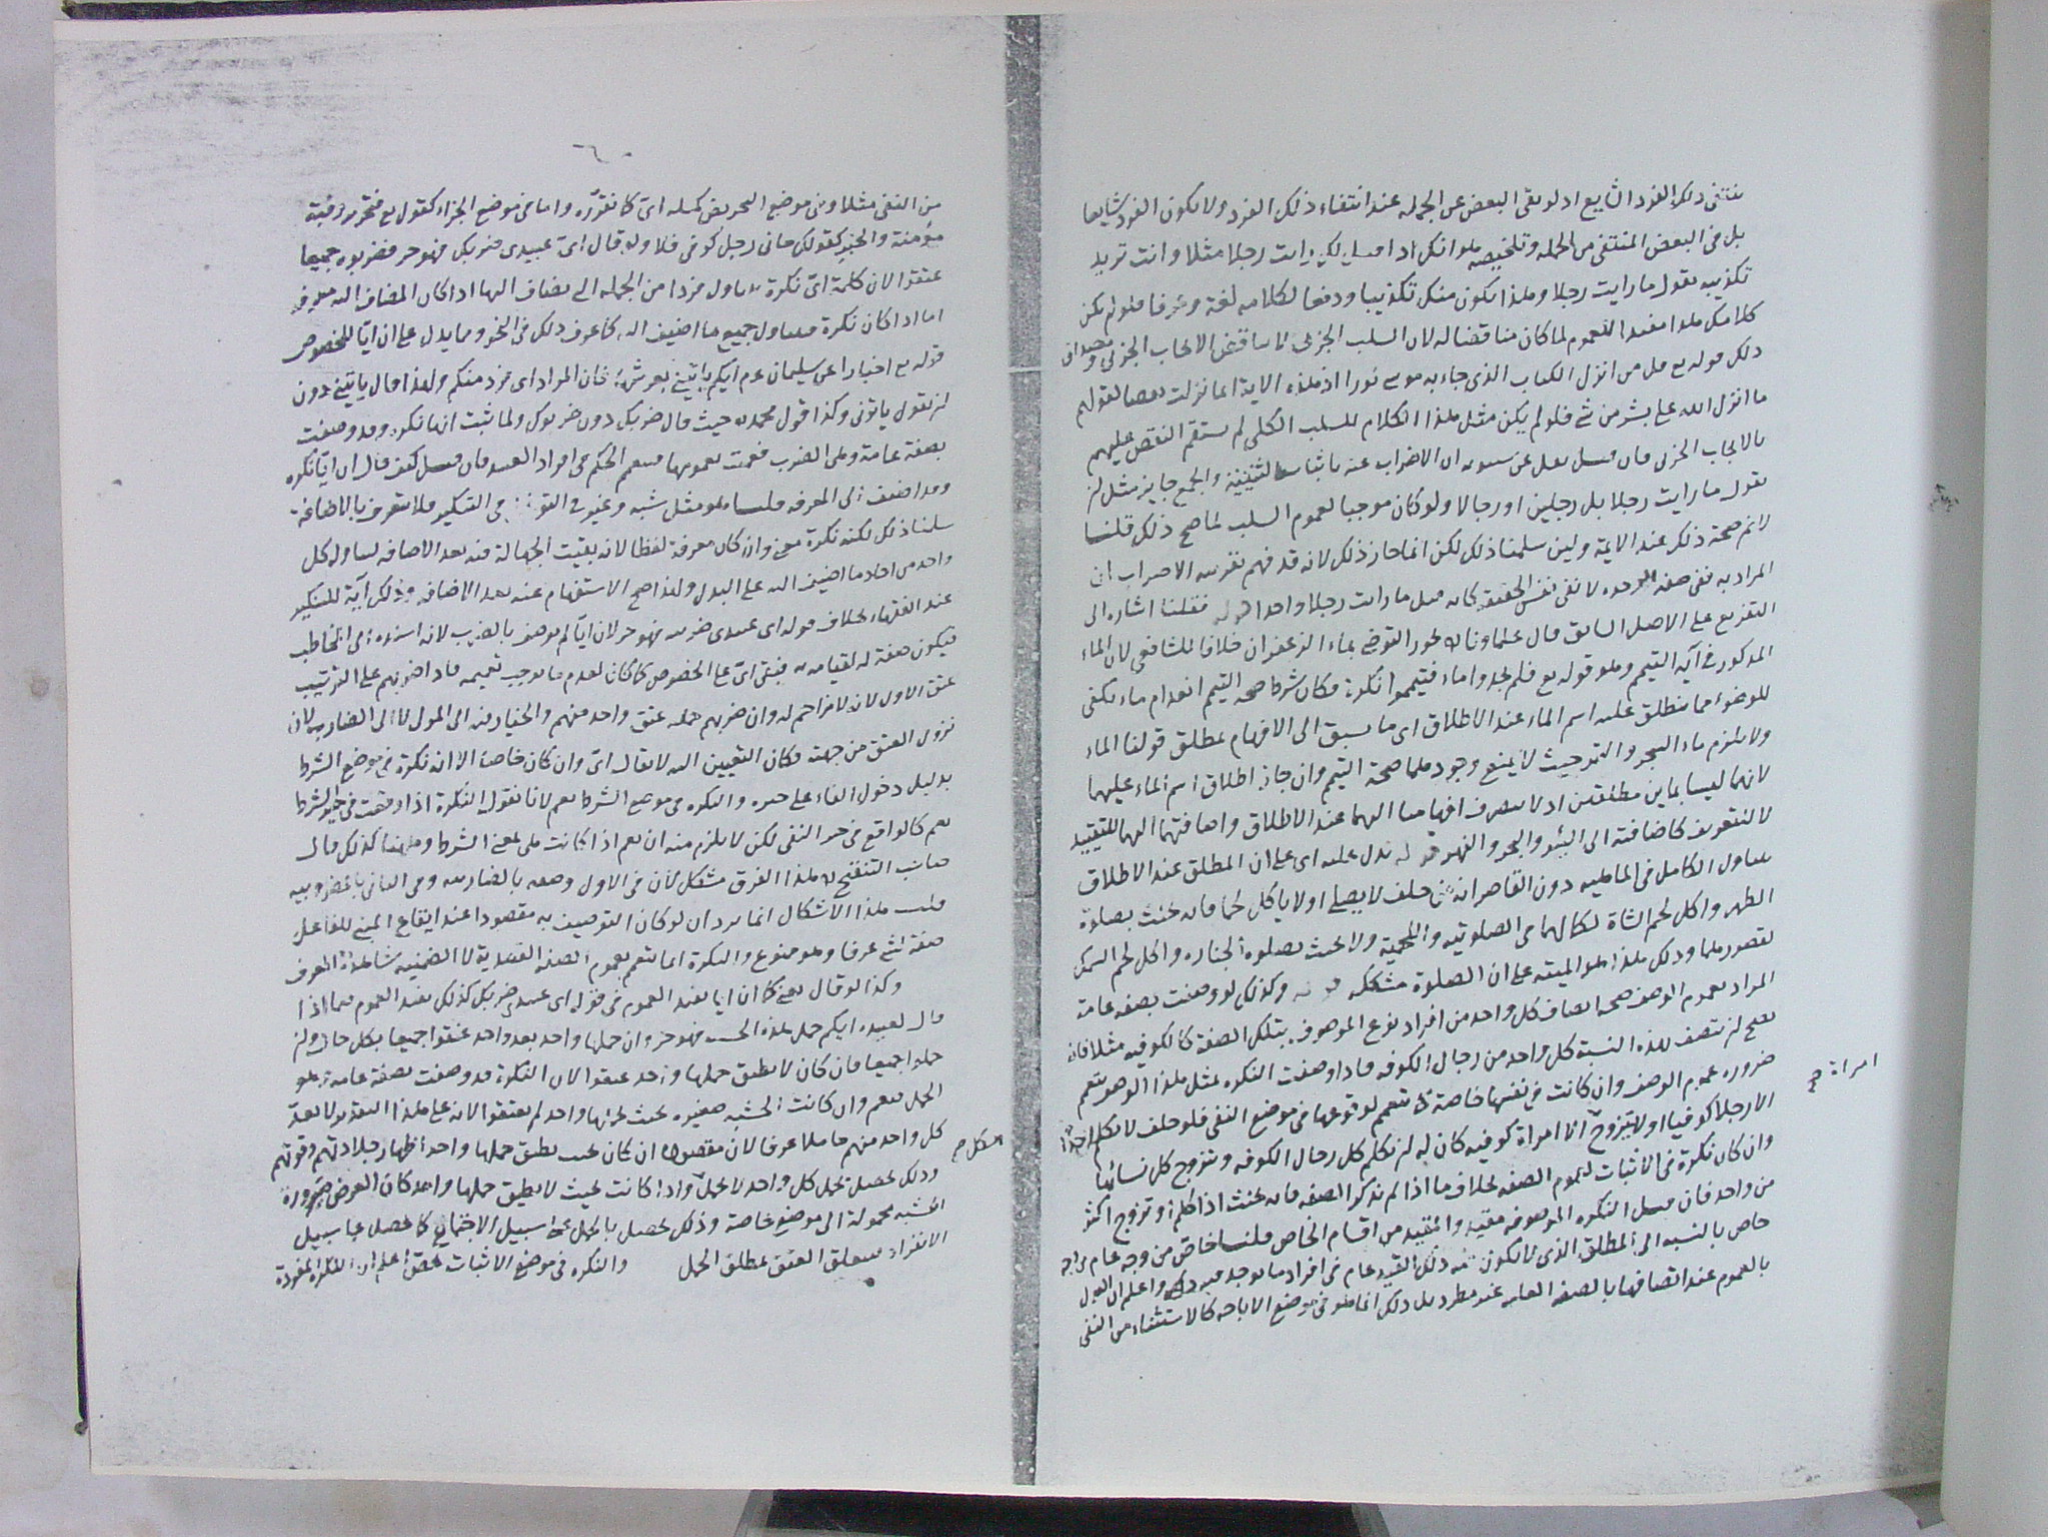 ينتفى ذلك الفرد الشايع اذ لو بقى البعض من الجملة عند انتفاء ذلك الفرد ولا يكون الفرد شايعا
بل فى البعض المنتفى من الجملة وتلخيصه هو انك اذا قيل لك رايت رجلا مثلا وانت تريد
تكذيبه تقول ما رايت رجلا وهذا يكون منك تكذيبا ودفعا لكلامه لغة وعرفا فلو لم يكن
كلامك هذا مفيدا للعموم لما كان مناقضا له لان السلب الجزئى لا يناقض الايجاب الجزئى
ذلك قوله تع قل من انزل الكتاب الذى جاء به موسى نورا اذ هذه الاية انما نزلت نقضا لقولهم
ما انزل الله على بشر من شئ فلو لم يكن مثل هذا الكلام للسلب الكلى لم يستقم النقض عليهم
بالايجاب الجزئى فان قيل نقل عن سيبويه ان الاضراب عنه باثبات التثنية والجمع جايز مثل ان
تقول ما رايت رجلا بل رجلين او رجالا ولو كان موجبا لعموم السلب لما صح ذلك قلنا
لانم صحة ذلك عند الايمة ولين سلمنا ذلك لكن انما جاز ذلك لانه قد فهم بقرينة الاضراب ان
المراد به نفى صفة الوحده لا نفى نفس الحقيقة كانه قيل ما رايت رجلا واحدا قوله فقلنا اشاره الى
التفريع على الاصل السابق قال علماونا لا يجوز التوضى بماء الزعفران خلافا للشافعى لان الماء
المذكور فى آية التيمم وهو قوله تع فلم تجدوا ماء فتيمموا نكرة فكان شرط صحة التيمم انعدام ماء يكفى
للوضوء مما ينطلق عليه اسم الماء عند الاطلاق اى ما يسبق الى الافهام بمطلق قولنا الماء
ولا يلزم ماء البحر والتمر حيث لا يمنع وجودهما صحة التيمم وان جاز اطلاق اسم الماء عليهما
لانهما ليسا بماين مطلقين اذ لا ينصرف افهامنا اليهما عند الاطلاق واضافتهما اليها للتقييد
لا للتعريف كاضافته الى البئر والبحر والنهر قوله يدل عليه اى على ان المطلق عند الاطلاق
يتناول الكامل فى الماهيه دون القاصر ان من حلف لا يصلى او لا ياكل لحما فانه يحنث بصلوة
الظهر واكل لحم الشاة لكمالهما فى الصلوتيه واللحمية ولا يحنث بصلوة الجنازه واكل لحم السمك
لقصورهما وذلك هذا هو المبتنى على ان الصلوة مشككه قوله وكذلك لو وصفت بصفه عامة
المراد بعموم الوصف صحة اتصاف كل واحد من افراد نوع الموصوف بتلك الصفة كالكوفيه مثلا فانه
يصح ان يتصف بهذه النسبة كل واحد من رجال الكوفه فاذا وصفت النكره بمثل هذا الوصف تعم
ضروره عموم الوصف وان كانت فى نفسها خاصة لا تتعمم لوقوعها فى موضع النفى فلو حلف لا يكلم احدا
الا رجلا كوفيا او لا يتزوج الا امراة كوفيه كان له ان يكلم كل رجال الكوفه ويتزوج كل نسائها
وان كان نكرة فى الاثبات لعموم الصفه بخلاف ما اذا لم يذكر الصفه فانه يحنث اذا كلم او تزوج اكثر
من واحد فان قيل النكره الموصوفه مقيد والمقيد من اقسام الخاص قلنا خاص من وجه عام من وجه
خاص بالنسبة الى المطلق الذى لا يكون فيه ذلك القيد عام فى افراد ما يوجد فيه ذلك واعلم ان القول
بالعموم عند اتصافها بالصفه العامه غير مطرد بل ذلك انما هو فى موضع الاباحه كالاستثناء من النفى
امراة صح
٦٠
من النفى مثلا وفى موضع التحريض كمسئلة اى كما نقرّره واما فى موضع الجزاء كقوله تع فتحرير رقبة
مؤمنة والخبر كقولك جانى رجل كوفى فلا وله قال اىّ عبيدى ضربك فهو حر فضربوه جميعا
عتقوا لان كلمة اىّ نكرة تتناول فردا من الجملة التى يضاف اليها اذا كان المضاف اليه معرفة
اما اذا كان نكرة فيتناول جميع ما اضيف اليه كما عرف ذلك فى النحو ومما يدل على ان ايّا للخصوص
قوله تع اخبارا عن سليمان عم ايكم ياتينى بعرشها فان المراد اى فرد منكم ولهذا قال ياتينى دون
ان يقول ياتونى وكذا قول محمد ره حيث قال ضربك دون ضربوك ولما ثبت انها نكره وقد وصفت
بصفة عامة وهى الضرب فعمت بعمومها فيعم الحكم فى افراد العبيد فان قيل كيف قال ان ايّا نكره
وقد اضيف الى المعرفه قلنا هو مثل شبه وغير فى التوغل فى التنكير فلا يتعرف بالاضافة
سلنا ذلك لكنه نكرة معنى وان كان معرفة لفظا لانه بقيت الجهالة فيه بعد الاضافه لتناوله كل
واحد من احاد ما اضيف اليه على البدل ولهذا صح الاستفهام عنه بعد الاضافه وذلك آية للتنكير
عند الفقهاء بخلاف قوله اى عبيدى ضربته فهو حر لان ايّا لم يوصف بالضرب لانه اسنده الى المخاطب
فيكون صفة له لقيامه به فبقى اىّ على الخصوص كما كان لعدم ما يوجب تعميمه فاذا ضربهم على الترتيب
عتق الاول لانه لا مزاحم له وان ضربهم جملة عتق واحد منهم والخيار فيه الى المولى لا الى الضارب لان
نزول العتق من جهته فكان التعيين اليه لا يقال اىّ وان كان خاصا الا انه نكرة فى موضع الشرط
بدليل دخول الفاء على خبره والنكره فى موضع الشرط تعم لانا نقول النكرة اذا وقعت فى حيز الشرط
تعم كالواقع فى حيز النفى لكن لا يلزم منه ان تعم اذا كانت هى بمعنى الشرط وههنا كذلك قال
صاحب التنقيح ره هذا الفرق مشكل لان فى الاول وصفه بالضاربيه وفى الثانى بالمضروبيه
قلت هذا الاشكال انما يرد ان لو كان التوصيف به مقصودا عند ايقاع المبنى للفاعل
صفة لشئ عرفا وهو ممنوع والنكرة انما تتعمم بعموم الصفه القصدية لا الضمنيه شاهده العرف
وكذا لو قال يعنى كما ان ايا يفيد العموم فى قوله اى عبيدى ضربك كذلك يفيد العموم فيما اذا
قال لعبيده ايكم حمل هذه الخشبه فهو حر وان حملها واحد بعد واحد عتقوا جميعا بكل حال وان
حملوا جميعا فان كان لا يطيق حملها واحد عتقوا لان النكرة قد وصفت بصفة عامة وهو
الحمل فيعم وان كانت الخشبه صغيره بحيث يحملها واحد لم يعتقوا لانه على هذا التقدير لا يعدّ
كل واحد منهم حاملا عرفا لان مقصوده ان كان بحيث يطيق حملها واحد اظهار جلادتهم وقوتهم
وذلك يحصل بحمل كل واحد لا بحملٍ واذا كانت بحيث لا يطيق حملها واحد كان الغرض صيرورة
الخشبه محمولة الى موضع خاصة وذلك يحصل بالحمل على سبيل الاجتماع كما يحصل على سبيل
الانفراد فيتعلق العتق بمطلق الحمل والنكره فى موضع الاثبات تخص اعلم ان النكرة المفردة